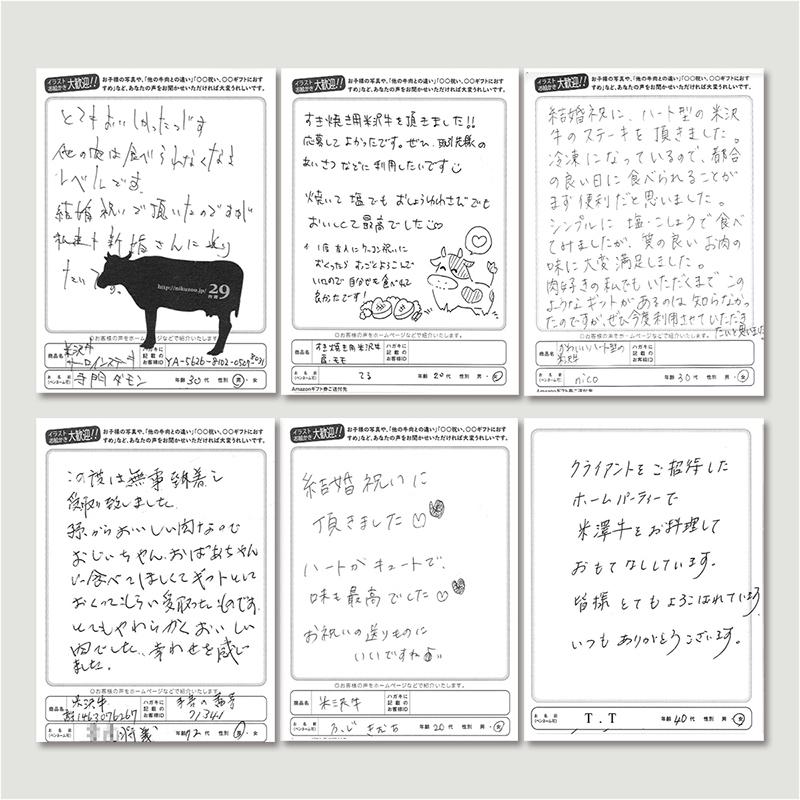 イラスト
お絵かき
大歓迎!!
お子様の写真や、「他の牛肉との違い」「〇〇祝い、〇〇ギフトにおす
すめ」など、あなたの声をお聞かせいただければ大変うれしいです。
とてもおいしかったです
他の肉は食べられなくなる
レベルです。
結婚祝いで頂いたのですが
新婚さんに送り
たいです。
http://nikuzoo.jp/
29
肉蔵
◎お客様の声をホームページなどで紹介いたします。
商品名
米沢牛
サーロインステーキ
ハガキに
記載の
お客様ID
お名前
(ペンネーム可)
寺門ダモン
年齢 30代 性別 男・女
イラスト
お絵かき
大歓迎!!
お子様の写真や、「他の牛肉との違い」「〇〇祝い、〇〇ギフトにおす
すめ」など、あなたの声をお聞かせいただければ大変うれしいです。
すき焼き用米沢牛を頂きました!!
応募してよかったです。ぜひ、取引先様の
あいさつなどに利用したいです
焼いて塩でもおしょうゆわさびでも
おいしくて最高でした
おくったらすごくよろこんで
いたので自分でも食べれて
良かったです!
◎お客様の声をホームページなどで紹介いたします。
商品名
すき焼き用米沢牛
肩・モモ
ハガキに
記載の
お客様ID
お名前
(ペンネーム可)
てる
年齢 20代 性別 男・女
Amazonギフト券ご送付先
イラスト
お絵かき
大歓迎!!
お子様の写真や、「他の牛肉との違い」「〇〇祝い、〇〇ギフトにおす
すめ」など、あなたの声をお聞かせいただければ大変うれしいです。
結婚祝に、ハート型の米沢
牛のステーキを頂きました。
冷凍になっているので、都合
の良い日に食べられることが
まず便利だと思いました。
シンプルに塩・こしょうで食べ
てみましたが、質の良いお肉の
味に大変満足しました。
肉好きの私でもいただくまでこの
ようなギフトがあるのは知らなかっ
たのですが、ぜひ今度利用させていただき
たいと思いました。
◎お客様の声をホームページなどで紹介いたします。
商品名
かわいいハート型の
米沢牛
ハガキに
記載の
お客様ID
お名前
(ペンネーム可)
nico
年齢 30代 性別 男・女
Amazonギフト券ご送付先
イラスト
お絵かき
大歓迎!!
お子様の写真や、「他の牛肉との違い」「〇〇祝い、〇〇ギフトにおす
すめ」など、あなたの声をお聞かせいただければ大変うれしいです。
この度は無事到着し
受取り致しました。
孫からおいしい肉なので
おじいちゃん、おばあちゃん
に食べてほしくてギフトとして
おくってもらい受取ったものです。
とてもやわらかくおいしい
肉でした。幸わせを感じ
ました。
◎お客様の声をホームページなどで紹介いたします。
商品名
米沢牛
ハガキに
記載の
お客様ID
71341
お名前
(ペンネーム可)
年齢 72代 性別 男・女
イラスト
お絵かき
大歓迎!!
お子様の写真や、「他の牛肉との違い」「〇〇祝い、〇〇ギフトにおす
すめ」など、あなたの声をお聞かせいただければ大変うれしいです。
結婚祝いに
頂きました
ハートがキュートで、
味も最高でした
お祝いの送りものに
いいですね♪
◎お客様の声をホームページなどで紹介いたします。
商品名
米沢牛
ハガキに
記載の
お客様ID
お名前
(ペンネーム可)
年齢 20代 性別 男・女
Amazonギフト券ご送付先
クライアントをご招待した
ホームパーティーで
米澤牛をお料理して
おもてなししています。
皆様とてもよろこばれています
いつもありがとうございます。
お名前
(ペンネーム可)
T.T
年齢 40代 性別 男・女